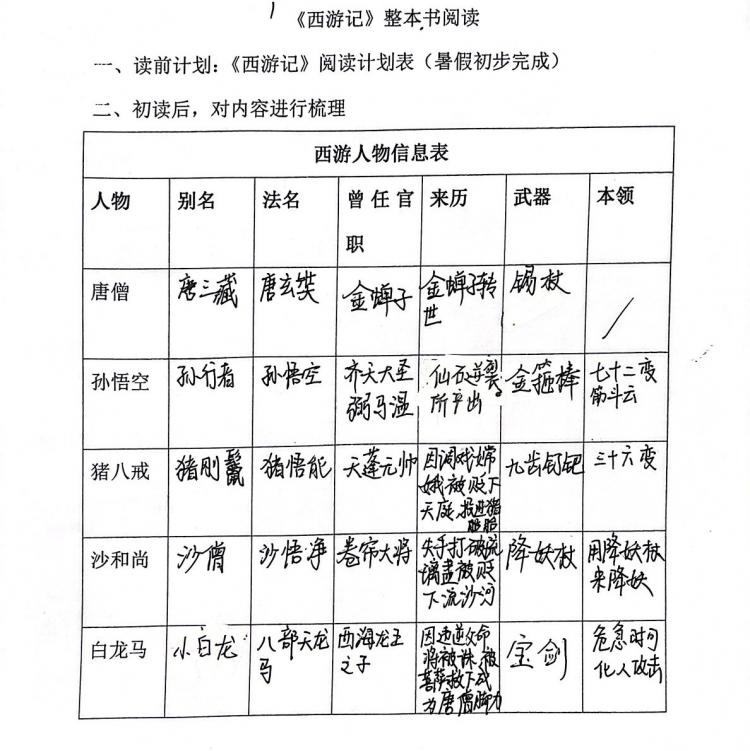 《西游记》整本书阅读
一、读前计划：《西游记》阅读计划表（暑假初步完成）
二、初读后，对内容进行梳理
西游人物信息表
人物 别名 法名 曾任官职 来历 武器 本领
唐僧 唐三藏 唐玄奘 金蝉子 金蝉子转世 锡杖 /
孙悟空 孙行者 孙悟空 齐天大圣 弼马温 仙石迸裂所产出 金箍棒 七十二变 筋斗云
猪八戒 猪刚鬣 猪悟能 天蓬元帅 因调戏嫦娥被贬下天庭,投进猪胎 九齿钉钯 三十六变
沙和尚 沙僧 沙悟净 卷帘大将 失手打破琉璃盏被贬下流沙河 降妖杖 用降妖杖来降妖
白龙马 小白龙 八部天龙马 西海龙王之子 因违逆父命将被诛,被菩萨救下成为唐僧脚力 宝剑 危急时可化人攻击